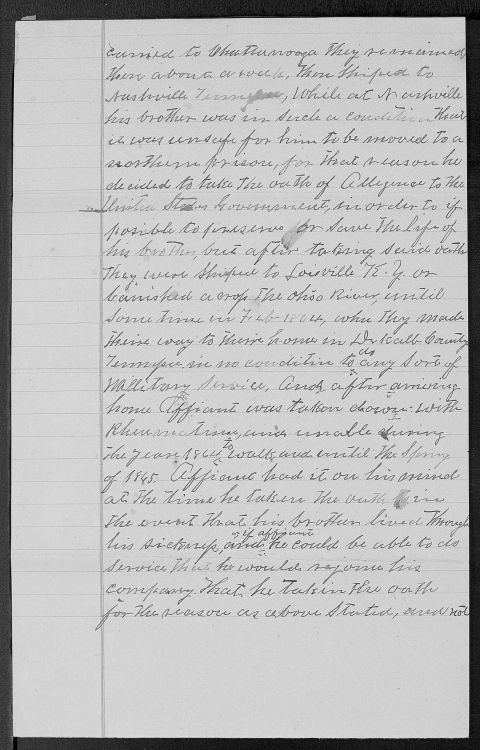 carried to Chattanooga they remained
there about a week, then shiped to
Nashville Tennessee, While at Nashville
his brother was in such a condition that
it was unsafe for him to be moved to a
northern prison, for that reason he
decided to take the oath of Allegence to the
United States Government, in order to if
posible to preserve or save the life of
his brother, but after taking said oath
they were shiped to Loisville K.E.Y. or
banished across the Ohio River, until
some time in Feb 1864, when they made
their way to their home in DeKalb County
Tennessee, in no condition to do any sort of
Millitary service, and, after arriving
home Affiant was taken down with
Rheumatism, and unable during
the year 1864 to walk and until the Spring
of 1865. Affiant had it on his mind
at the time he taken the oath in
the event that his brother lived through
his sickness, and if affiant he could be able to do
service that he would rejoine his
company. That he taken the oath
for the reason as above stated, and not